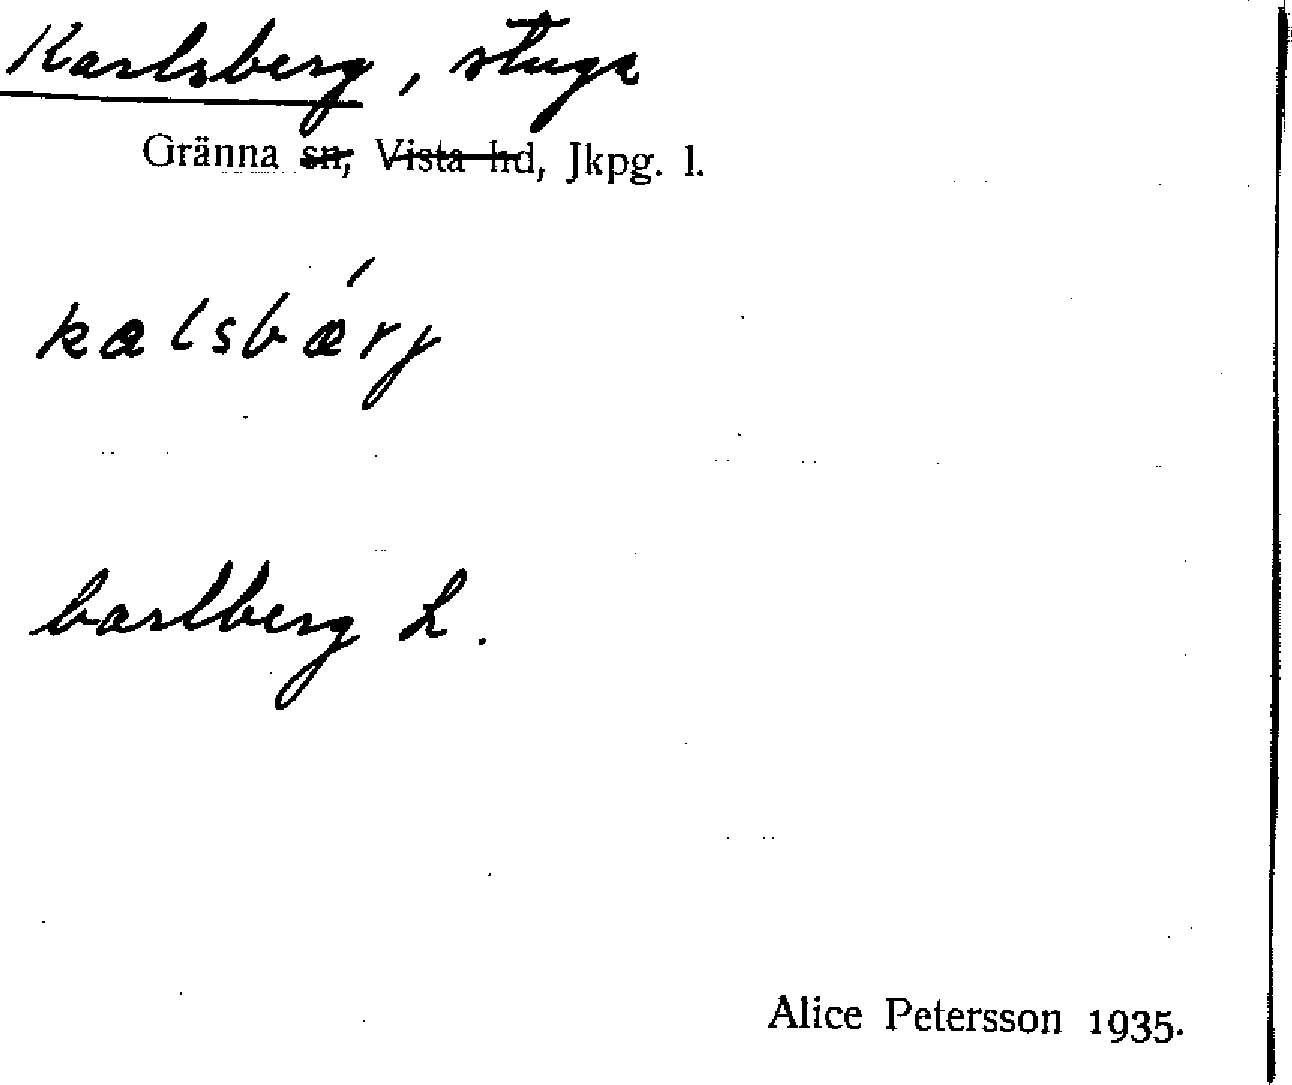 Karlsberg, stuga
Gränna sn, Vista hd, Jkpg. l.
kalsbǽrj
barlberg L.
Alice Petersson 1935.